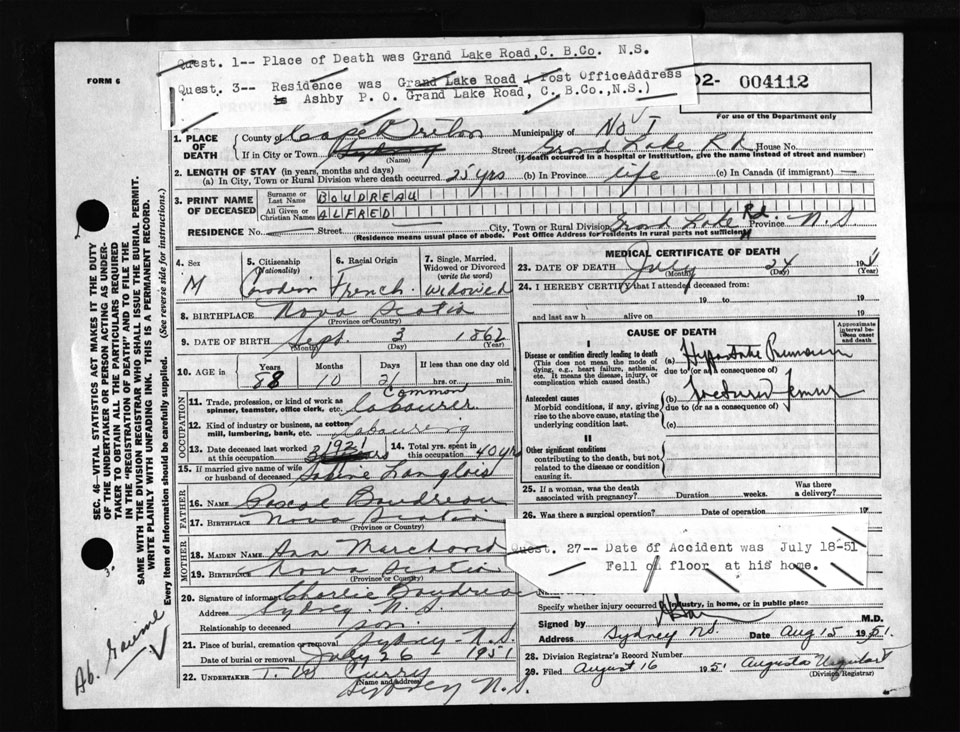 FORM 6
Quest. 1-- Place of Death was Grand Lake Road, C. B.Co. N.S.
Quest. 3-- Residence was Grand Lake Road & Post Office Address
is Ashby P. O. Grand Lake Road, C. B.Co.,N.S.)
02- 004112
For use of the Department only
1. PLACE OF DEATH
County of Cape Breton Municipality of No I
If in City or Town Sydney (Name) Street Grand Lake Rd House No.
(If death occurred in a hospital or institution, give the name instead of street and number)
2. LENGTH OF STAY (in years, months and days)
(a) In City, Town or Rural Division where death occurred 25 yrs (b) In Province life (c) In Canada (if immigrant) —
3. PRINT NAME OF DECEASED
Surname or Last Name BOUDREAU
All Given or Christian Names ALFRED
RESIDENCE No. — Street City, Town or Rural Division Grand Lake Rd Province N.S
(Residence means usual place of abode. Post Office Address for residents in rural parts not sufficient)
4. Sex M
5. Citizenship (Nationality) Canadian
6. Racial Origin French
7. Single, Married, Widowed or Divorced (write the word) Widowed
8. BIRTHPLACE Nova Scotia (Province or Country)
9. DATE OF BIRTH Sept (Month) 3 (Day) 1862 (Year)
10. AGE Years 88 Months 10 Days 21 If less than one day old hrs. or min.
OCCUPATION
11. Trade, profession, or kind of work as spinner, teamster, office clerk, etc. Common labourer
12. Kind of industry or business, as cotton mill, lumbering, bank, etc. Labouring
13. Date deceased last worked at this occupation 1921
14. Total yrs. spent in this occupation 40 yrs
15. If married give name of wife or husband of deceased Langlois
FATHER
16. NAME Boudreau
17. BIRTHPLACE Nova Scotia (Province or Country)
MOTHER
18. MAIDEN NAME Ann Marchand
19. BIRTHPLACE Nova Scotia (Province or Country)
20. Signature of informant Charlie Boudreau
Address Sydney N.S.
Relationship to deceased son
21. Place of burial, cremation or removal Sydney - N.S.
Date of burial or removal July 26 1951
22. UNDERTAKER T. W. Curry
(Name and Address) Sydney N.S.
MEDICAL CERTIFICATE OF DEATH
23. DATE OF DEATH July (Month) 24 (Day) 19 (Year)
24. I HEREBY CERTIFY that I attended deceased from:
19 to 19
and last saw h alive on 19
CAUSE OF DEATH
Approximate interval between onset and death
I
Disease or condition directly leading to death
(This does not mean the mode of dying, e.g., heart failure, asthenia, etc. It means the disease, injury, or complication which caused death.)
(a) Hypostatic Pneumonia
due to (or as a consequence of)
Antecedent causes
Morbid conditions, if any, giving rise to the above cause, stating the underlying condition last.
(b) Fractured Femur
due to (or as a consequence of)
(c)
II
Other significant conditions
contributing to the death, but not related to the disease or condition causing it.
25. If a woman, was the death associated with pregnancy? Duration weeks. Was there a delivery?
26. Was there a surgical operation? Date of operation 19
Quest. 27-- Date of Accident was July 18-51
Fell on floor at his home.
Specify whether injury occurred in industry, in home, or in public place
Signed by M.D.
Address Sydney N.S. Date Aug 15 1951.
28. Division Registrar's Record Number
29. Filed August 16 1951 Augusta Urquhart
(Division Registrar)
SEC. 46-VITAL STATISTICS ACT MAKES IT THE DUTY
OF THE UNDERTAKER OR PERSON ACTING AS UNDER-
TAKER TO OBTAIN ALL THE PARTICULARS REQUIRED
IN THE "REGISTRATION OF DEATH" AND TO FILE THE
SAME WITH THE DIVISION REGISTRAR WHO SHALL ISSUE THE BURIAL PERMIT.
WRITE PLAINLY WITH UNFADING INK. THIS IS A PERMANENT RECORD.
Every item of information should be carefully supplied. (See reverse side for instructions.)